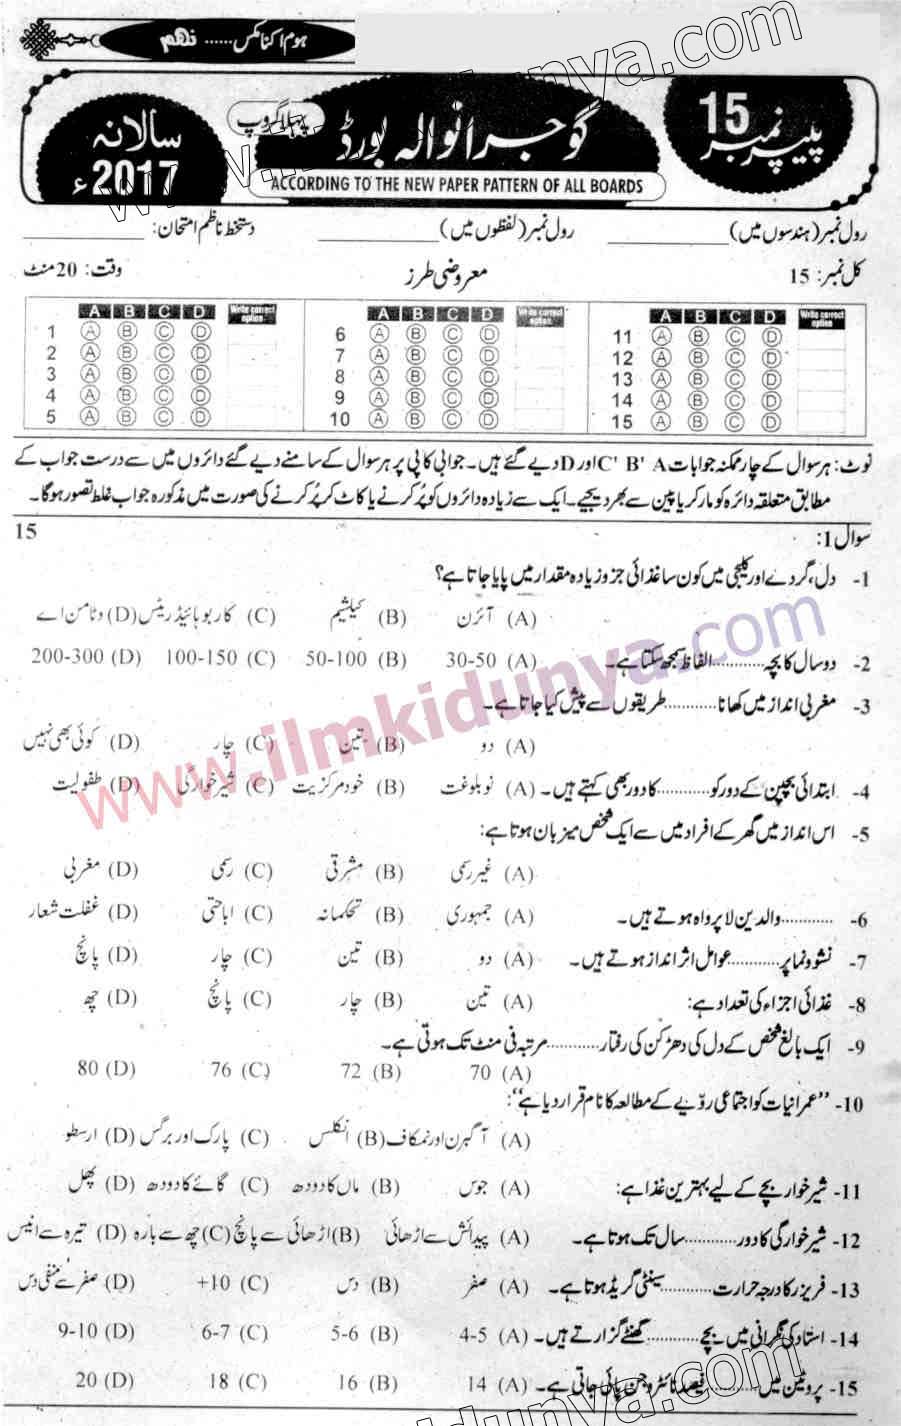 ہوم اکنامکس...... نہم
پیپر نمبر 15
گوجرانوالہ بورڈ
پہلا گروپ
سالانہ 2017ء
ACCORDING TO THE NEW PAPER PATTERN OF ALL BOARDS
رول نمبر (ہندسوں میں) ____________ رول نمبر (لفظوں میں) ____________ دستخط ناظم امتحان: ____________
کل نمبر: 15 معروضی طرز وقت: 20 منٹ
A B C D Write correct option A B C D Write correct option A B C D Write correct option
1 A B C D 6 A B C D 11 A B C D
2 A B C D 7 A B C D 12 A B C D
3 A B C D 8 A B C D 13 A B C D
4 A B C D 9 A B C D 14 A B C D
5 A B C D 10 A B C D 15 A B C D
نوٹ: ہر سوال کے چار ممکنہ جوابات A 'B 'C اور D دیے گئے ہیں۔ جوابی کاپی پر ہر سوال کے سامنے دیے گئے دائروں میں سے درست جواب کے
مطابق متعلقہ دائرہ کو مارکر یا پین سے بھر دیجیے۔ ایک سے زیادہ دائروں کو پُر کرنے یا کاٹ کر پُر کرنے کی صورت میں مذکورہ جواب غلط تصور ہوگا۔
سوال 1: 15
1- دل، گردے اور کلیجی میں کون سا غذائی جزو زیادہ مقدار میں پایا جاتا ہے؟
(A) آئرن (B) کیلشیم (C) کاربوہائیڈریٹس (D) وٹامن اے
2- دو سال کا بچہ........... الفاظ سمجھ سکتا ہے۔ (A) 30-50 (B) 50-100 (C) 100-150 (D) 200-300
3- مغربی انداز میں کھانا........... طریقوں سے پیش کیا جاتا ہے۔
(A) دو (B) تین (C) چار (D) کوئی بھی نہیں
4- ابتدائی بچپن کے دور کو........... کا دور بھی کہتے ہیں۔ (A) نوبلوغت (B) خود مرکزیت (C) شیر خوارگی (D) طفولیت
5- اس انداز میں گھر کے افراد میں سے ایک شخص میزبان ہوتا ہے:
(A) غیر رسمی (B) مشرقی (C) رسمی (D) مغربی
6- ........... والدین لاپرواہ ہوتے ہیں۔ (A) جمہوری (B) تحکمانہ (C) اباحتی (D) غفلت شعار
7- نشوونما پر........... عوامل اثر انداز ہوتے ہیں۔ (A) دو (B) تین (C) چار (D) پانچ
8- غذائی اجزاء کی تعداد ہے: (A) تین (B) چار (C) پانچ (D) چھ
9- ایک بالغ شخص کے دل کی دھڑکن کی رفتار........... مرتبہ فی منٹ تک ہوتی ہے۔
(A) 70 (B) 72 (C) 76 (D) 80
10- "عمرانیات کو اجتماعی روّیے کے مطالعہ کا نام قرار دیا ہے":
(A) آگبرن اور نمکاف (B) انکلس (C) پارک اور برگس (D) ارسطو
11- شیر خوار بچے کے لیے بہترین غذا ہے: (A) جوس (B) ماں کا دودھ (C) گائے کا دودھ (D) پھل
12- شیر خوارگی کا دور........... سال تک ہوتا ہے۔ (A) پیدائش سے اڑھائی (B) اڑھائی سے پانچ (C) چھ سے بارہ (D) تیرہ سے انیس
13- فریزر کا درجہ حرارت........... سینٹی گریڈ ہوتا ہے۔ (A) صفر (B) دس (C) +10 (D) صفر سے منفی دس
14- استاد کی نگرانی میں بچے........... گھنٹے گزارتے ہیں۔ (A) 4-5 (B) 5-6 (C) 6-7 (D) 9-10
15- پروٹین میں........... فیصد نائٹروجن پائی جاتی ہے۔ (A) 14 (B) 16 (C) 18 (D) 20
www.ilmkidunya.com